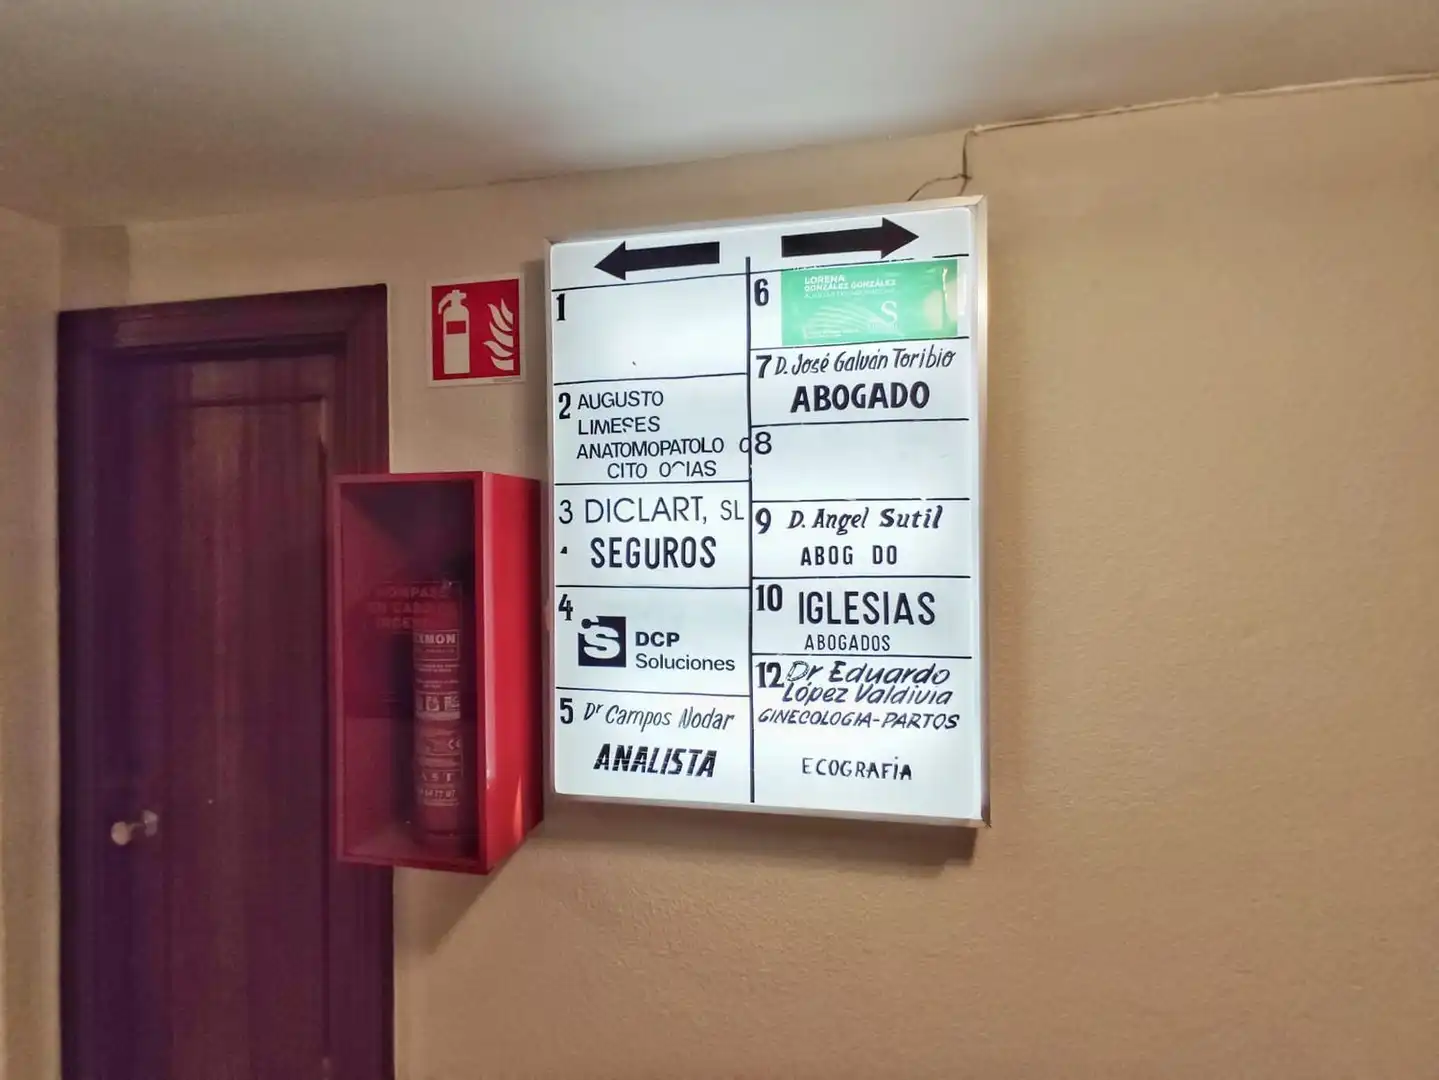 1
2 AUGUSTO
LIMESES
ANATOMOPATOLO
CITO
3 DICLART, SL
SEGUROS
4 S DCP
Soluciones
5 Dr Campos Nodar
ANALISTA
6 LORENA
GONZÁLEZ GONZÁLEZ
S
7 D. José Galván Toribio
ABOGADO
8
9 D. Angel Sutil
ABOG DO
10 IGLESIAS
ABOGADOS
12 Dr Eduardo
López Valdivia
GINECOLOGIA-PARTOS
ECOGRAFÍA